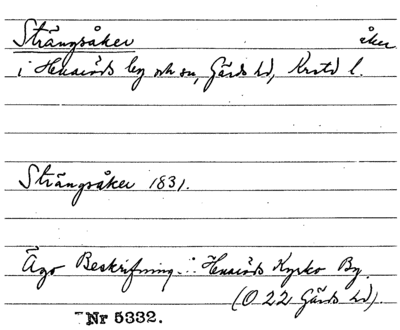 Strängsåker åker
i Huaröds by och sn, Gärds hd, Krstd l.
Strängsåker 1831.
Ägo Beskrifning .. Huaröds Kyrko By.
(O 22 Gärds hd).
Nr 5332.